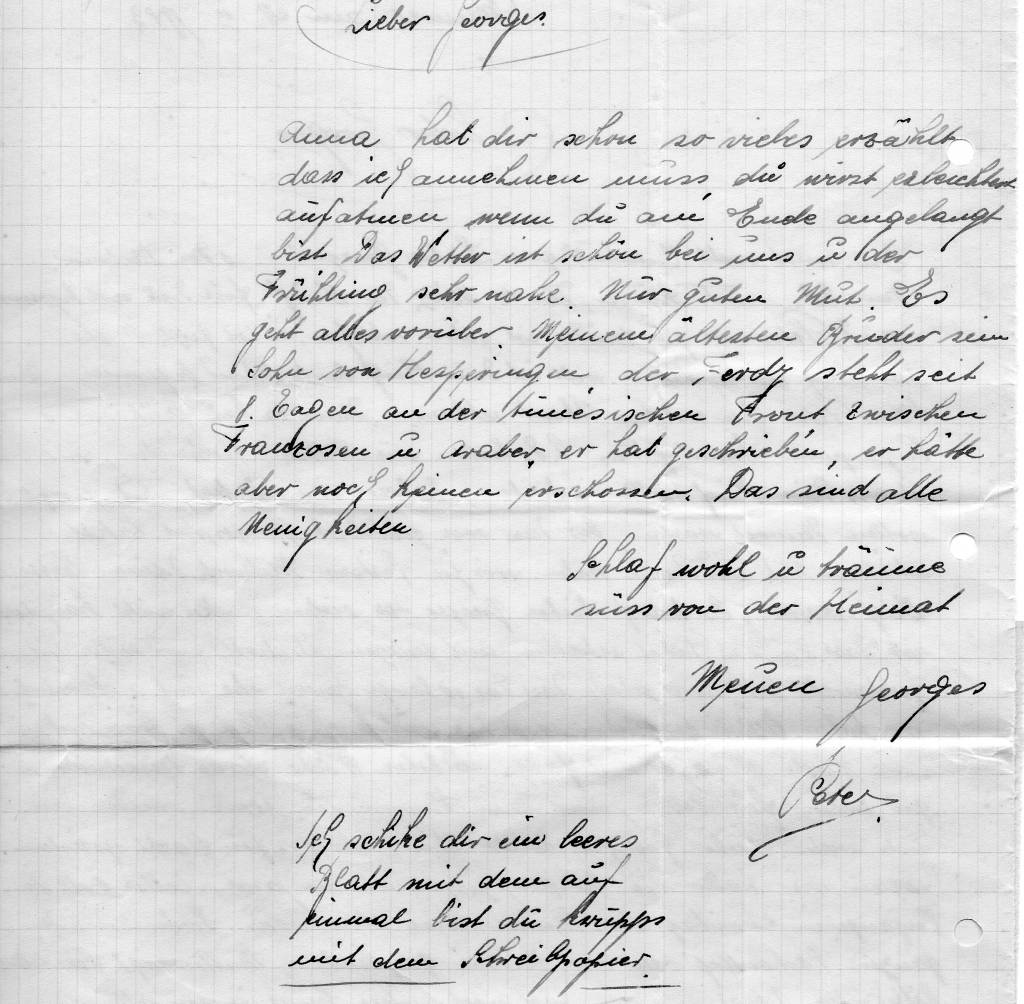 Lieber Georges.
Anna hat dir schon so vieles erzählt
dass ich annehmen muss, du wirst erleichtert
aufatmen wenn du am Ende angelangt
bist. Das Wetter ist schön bei uns u der
Frühling sehr nahe. Nur guten Mut. Es
geht alles vorüber. Meinem ältesten Bruder sein
Sohn von Hesperingen, der Ferdy steht seit
8. Tagen an der tunesischen Front zwischen
Franzosen u Araber, er hat geschrieben, er hätte
aber noch keinen erschossen. Das sind alle
Neuigkeiten
Schlaf wohl u träume
süss von der Heimat
Georges
Peter.
Ich schike dir ein leeres
Blatt mit dem auf
einmal bist du knupps
mit dem Schreibpapier.